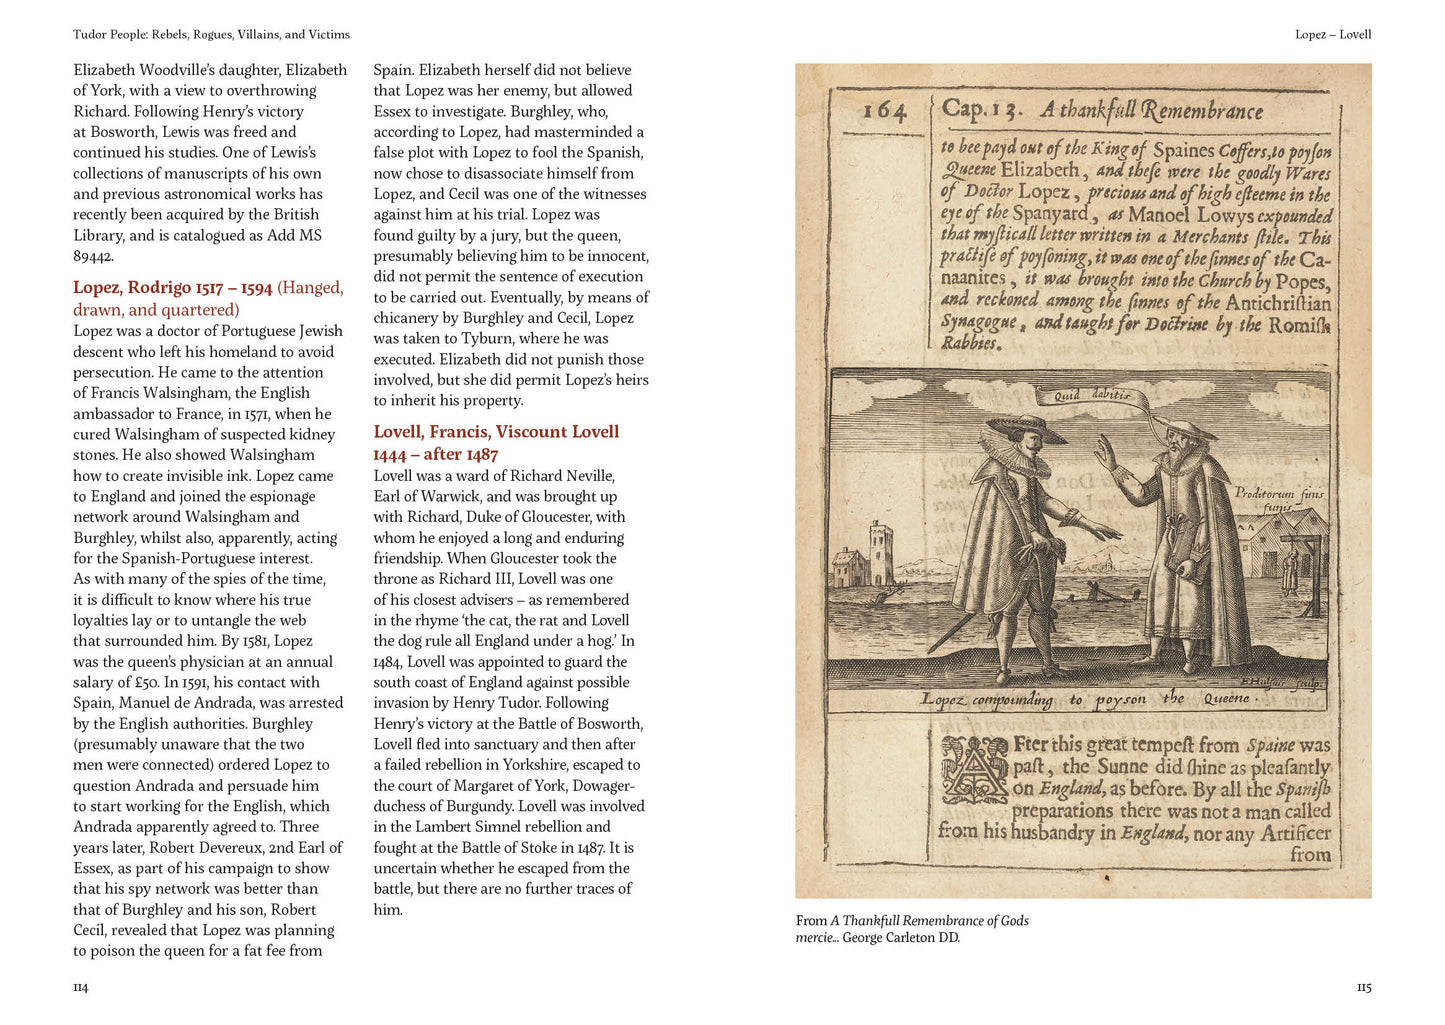 Tudor People: Rebels, Rogues, Villains, and Victims
Elizabeth Woodville's daughter, Elizabeth
of York, with a view to overthrowing
Richard. Following Henry's victory
at Bosworth, Lewis was freed and
continued his studies. One of Lewis's
collections of manuscripts of his own
and previous astronomical works has
recently been acquired by the British
Library, and is catalogued as Add MS
89442.
Lopez, Rodrigo 1517 – 1594 (Hanged,
drawn, and quartered)
Lopez was a doctor of Portuguese Jewish
descent who left his homeland to avoid
persecution. He came to the attention
of Francis Walsingham, the English
ambassador to France, in 1571, when he
cured Walsingham of suspected kidney
stones. He also showed Walsingham
how to create invisible ink. Lopez came
to England and joined the espionage
network around Walsingham and
Burghley, whilst also, apparently, acting
for the Spanish-Portuguese interest.
As with many of the spies of the time,
it is difficult to know where his true
loyalties lay or to untangle the web
that surrounded him. By 1581, Lopez
was the queen's physician at an annual
salary of £50. In 1591, his contact with
Spain, Manuel de Andrada, was arrested
by the English authorities. Burghley
(presumably unaware that the two
men were connected) ordered Lopez to
question Andrada and persuade him
to start working for the English, which
Andrada apparently agreed to. Three
years later, Robert Devereux, 2nd Earl of
Essex, as part of his campaign to show
that his spy network was better than
that of Burghley and his son, Robert
Cecil, revealed that Lopez was planning
to poison the queen for a fat fee from
114
Spain. Elizabeth herself did not believe
that Lopez was her enemy, but allowed
Essex to investigate. Burghley, who,
according to Lopez, had masterminded a
false plot with Lopez to fool the Spanish,
now chose to disassociate himself from
Lopez, and Cecil was one of the witnesses
against him at his trial. Lopez was
found guilty by a jury, but the queen,
presumably believing him to be innocent,
did not permit the sentence of execution
to be carried out. Eventually, by means of
chicanery by Burghley and Cecil, Lopez
was taken to Tyburn, where he was
executed. Elizabeth did not punish those
involved, but she did permit Lopez's heirs
to inherit his property.
Lovell, Francis, Viscount Lovell
1444 – after 1487
Lovell was a ward of Richard Neville,
Earl of Warwick, and was brought up
with Richard, Duke of Gloucester, with
whom he enjoyed a long and enduring
friendship. When Gloucester took the
throne as Richard III, Lovell was one
of his closest advisers – as remembered
in the rhyme ‘the cat, the rat and Lovell
the dog rule all England under a hog.’ In
1484, Lovell was appointed to guard the
south coast of England against possible
invasion by Henry Tudor. Following
Henry's victory at the Battle of Bosworth,
Lovell fled into sanctuary and then after
a failed rebellion in Yorkshire, escaped to
the court of Margaret of York, Dowager-
duchess of Burgundy. Lovell was involved
in the Lambert Simnel rebellion and
fought at the Battle of Stoke in 1487. It is
uncertain whether he escaped from the
battle, but there are no further traces of
him.
Lopez – Lovell
164 Cap.13. A thankfull Remembrance
to bee payd out of the King of Spaines Coffers, to poyſon
Queene Elizabeth, and theſe were the goodly Wares
of Doctor Lopez, precious and of high eſteeme in the
eye of the Spanyard, as Manoel Lowys expounded
that myſticall letter written in a Merchants ſtile. This
practiſe of poyſoning, it was one of the ſinnes of the Ca-
naanites, it was brought into the Church by Popes,
and reckoned among the ſinnes of the Antichriſtian
Synagogue, and taught for Doctrine by the Romiſh
Rabbies.
Quid dabitis
Proditorum finis
funis
F. Hulsius sculp.
Lopez compounding to poyson the Queene.
AFter this great tempeſt from Spaine was
paſt, the Sunne did ſhine as pleaſantly
on England, as before. By all the Spaniſh
preparations there was not a man called
from his husbandry in England, nor any Artificer
from
From A Thankfull Remembrance of Gods
mercie... George Carleton DD.
115